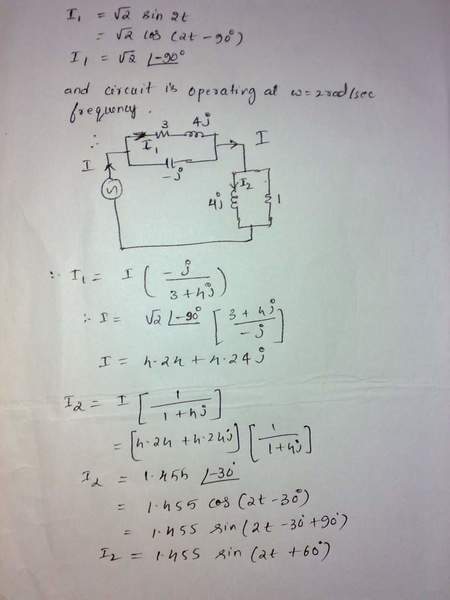 I₁ = √2 sin 2t
= √2 cos (2t - 90°)
I₁ = √2 ∠-90°
and circuit is operating at ω = 2 rad/sec
frequency.
∴
3 4j
I₁ I
-j
I
I₂
4j 1
∴ I₁ = I ( -j / 3+4j )
∴ I = √2 ∠-90° [ 3+4j / -j ]
I = 4.24 + 4.24j
I₂ = I [ 1 / 1+4j ]
= [4.24 + 4.24j] [ 1 / 1+4j ]
I₂ = 1.455 ∠-30°
= 1.455 cos (2t - 30°)
= 1.455 sin (2t - 30 + 90°)
I₂ = 1.455 sin (2t + 60°)